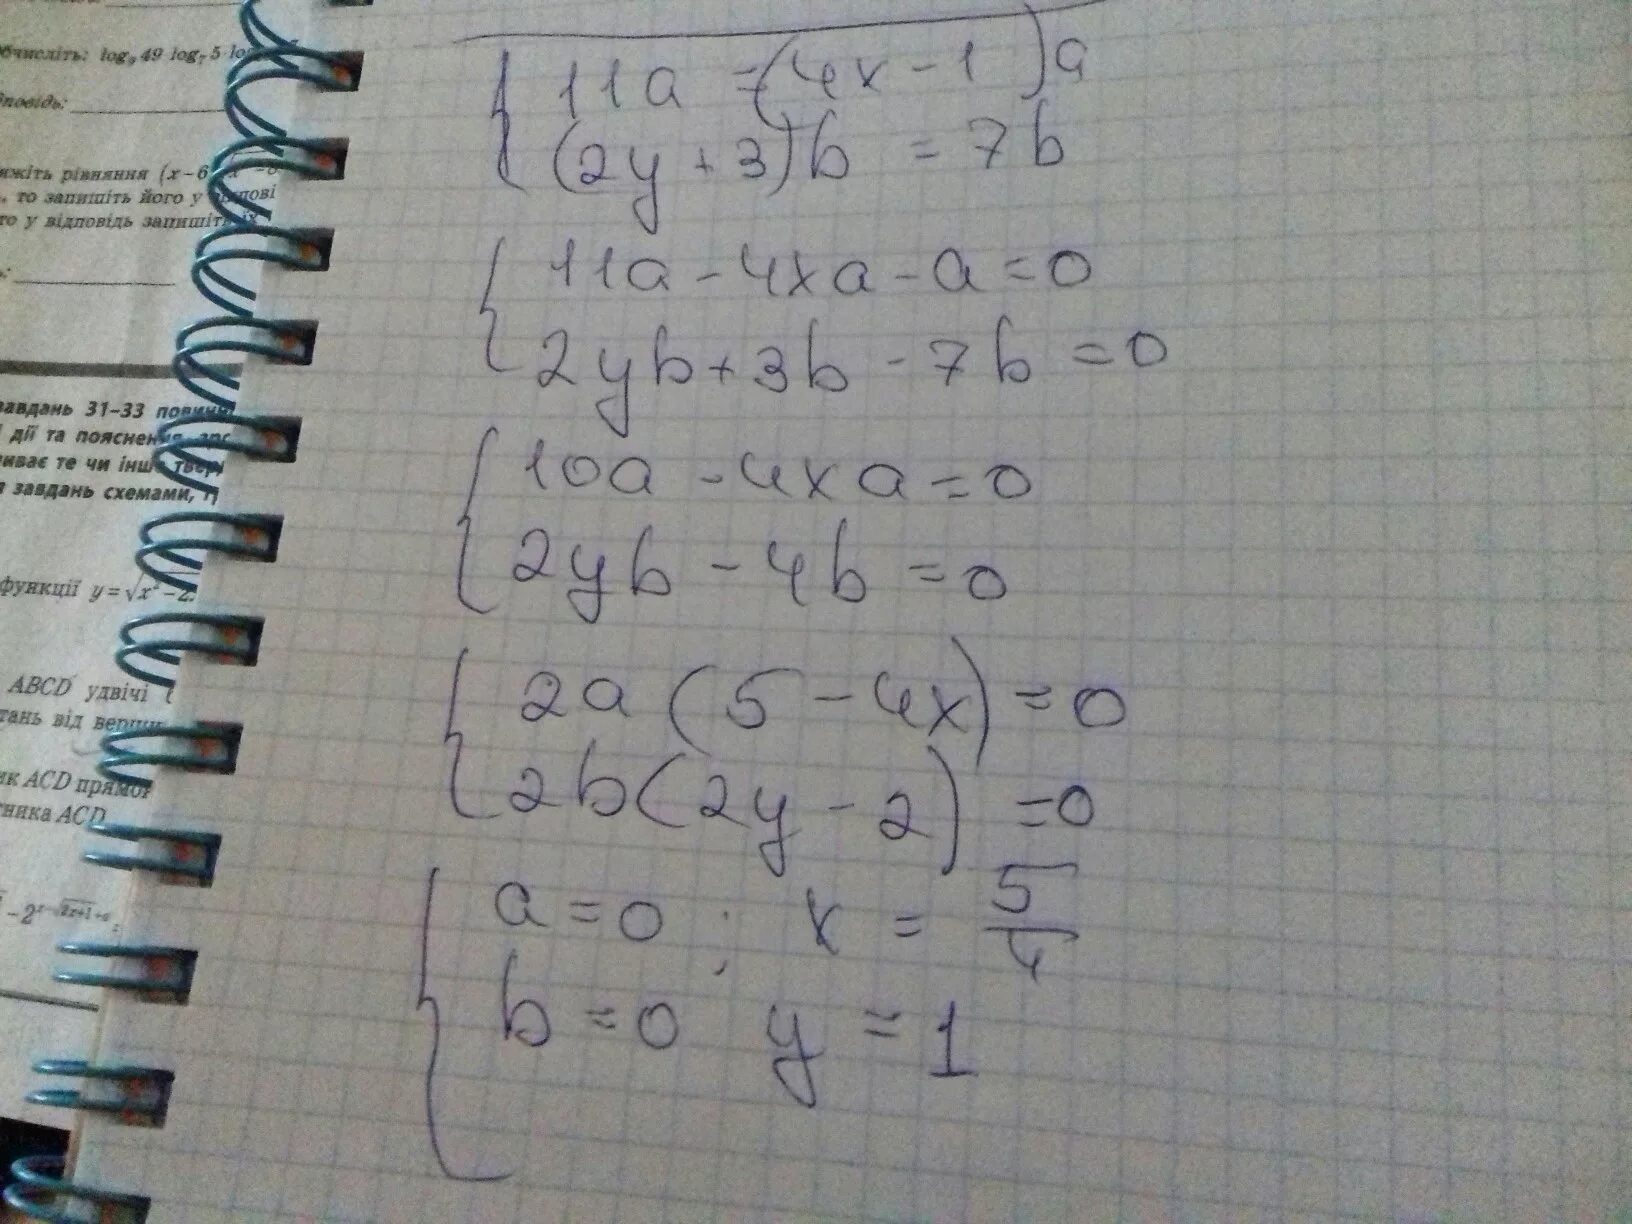 обчисліть: log₉ 49 · log₇ 5 · log
повідь:
яжіть рівняння (x−6
, то запишіть його у
то у відповідь запишіть їх
ь:
завдань 31–33 повинн
дії та пояснення
иває те чи інше твер
завдань схемами,
функції y=√x²−2
ABCD удвічі
тань від верши
ик ACD прямок
тника ACD
{ 11a = (4x − 1)a
(2y + 3)b = 7b
{ 11a − 4xa − a = 0
2yb + 3b − 7b = 0
{ 10a − 4xa = 0
2yb − 4b = 0
{ 2a (5 − 4x) = 0
2b (2y − 2) = 0
{ a = 0 ; x = 5/4
b = 0 ; y = 1